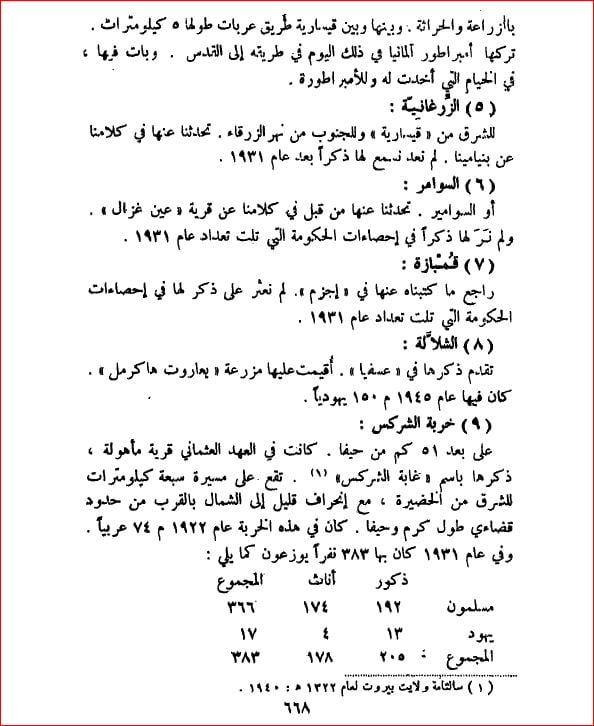 بالزراعة والحراثة . وبينها وبين قيسارية طريق عربات طولها ٥ كيلومترات .
تركها أمبراطور ألمانيا في ذلك اليوم في طريقه إلى القدس . وبات فيها ،
في الخيام التي أعدت له وللأمبراطورة .
(٥) الزُّرغانيّة :
للشرق من « قيسارية » وللجنوب من نهر الزرقاء . تحدثنا عنها في كلامنا
عن بنيامينا . لم نعد نسمع لها ذكراً بعد عام ١٩٣١ .
(٦) السوامر :
أو السوامير . تحدثنا عنها من قبل في كلامنا عن قرية « عين غزال » .
ولم نَرَ لها ذكراً في إحصاءات الحكومة التي تلت تعداد عام ١٩٣١ .
(٧) قُمْبازة :
راجع ما كتبناه عنها في « إجزم ». لم نعثر على ذكر لها في إحصاءات
الحكومة التي تلت تعداد عام ١٩٣١ .
(٨) الشلاّلة :
تقدم ذكرها في « عسفيا » . أُقيمت عليها مزرعة « يعاروت هاكرمل » .
كان فيها عام ١٩٤٥ م ١٥٠ يهودياً .
(٩) خربة الشركس :
على بعد ٥١ كم من حيفا . كانت في العهد العثماني قرية مأهولة ،
ذكرها باسم « غابة الشركس» (١) . تقع على مسيرة سبعة كيلومترات
للشرق من الخضيرة ، مع إنحراف قليل إلى الشمال بالقرب من حدود
قضاءي طول كرم وحيفا . كان في هذه الخربة عام ١٩٢٢ م ٧٤ عربياً .
وفي عام ١٩٣١ كان بها ٣٨٣ نفراً يوزعون كما يلي :
ذكور أناث المجموع
مسلمون ١٩٢ ١٧٤ ٣٦٦
يهود ١٣ ٤ ١٧
المجموع : ٢٠٥ ١٧٨ ٣٨٣
(١) سالنامة ولايت بيروت لعام ١٣٢٢ ه : ١٩٤٠ .
٦٦٨